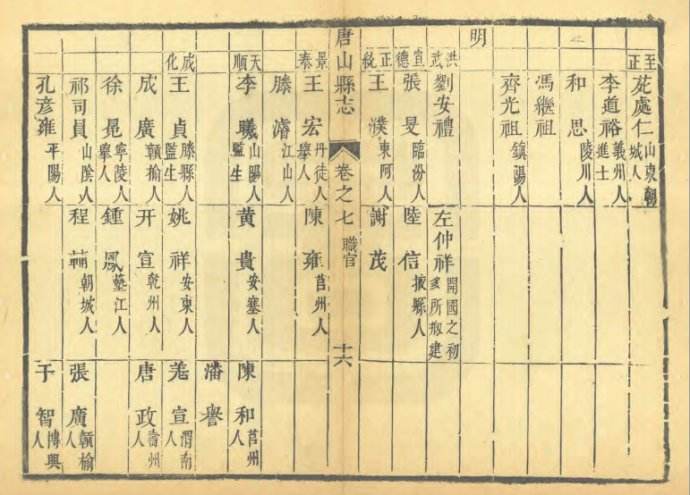 至正 苑處仁 山東朝城人
李道裕 義州人進士
和思 陵川人
馮繼祖
齊光祖 鎮陽人
明
洪武 劉安禮 左仲祥 開國之初多所拟建
宣德 張旻 臨汾人 陸信 掖縣人
正統 王濮 東阿人 謝茂
唐山縣志 卷之七 職官 十六
景泰 王宏 丹徒人舉人 陳雍 莒州人
滕濬 江山人
天順 李曦 山陽人監生 黃貴 安塞人 陳和 莒州人
潘譽
成化 王貞 滕縣人監生 姚祥 安東人 羗宣 渭南人
成廣 贛榆人 开宣 乾州人 唐政 人
徐冕 寧陵人舉人 鍾鳳 綦江人
祁司員 山陰人 程 朝城人 張廣 贛榆人
孔彦雍 平陽人 于智 博興人